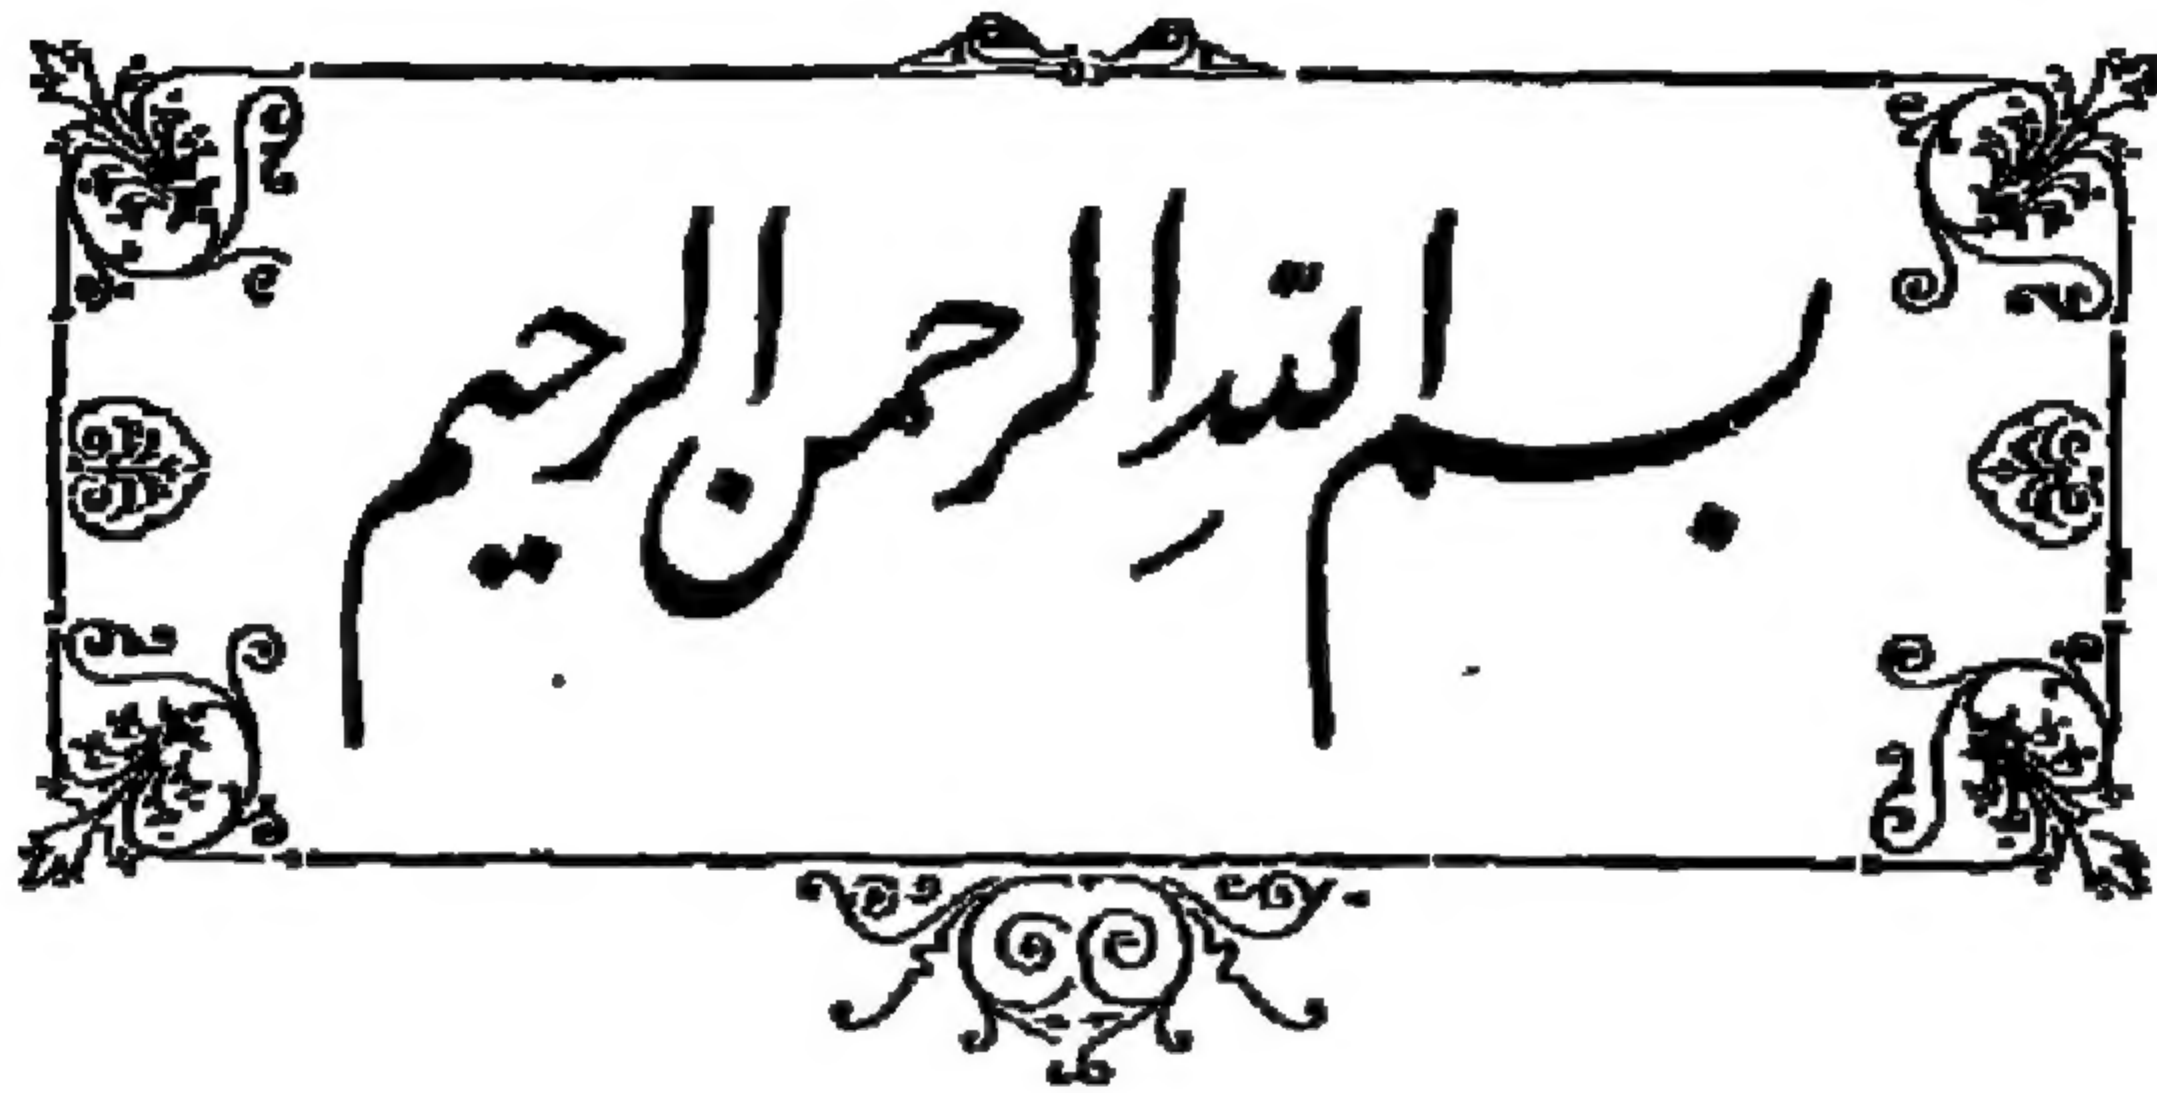 بسم اللّٰهِ الرحمن الرحيم